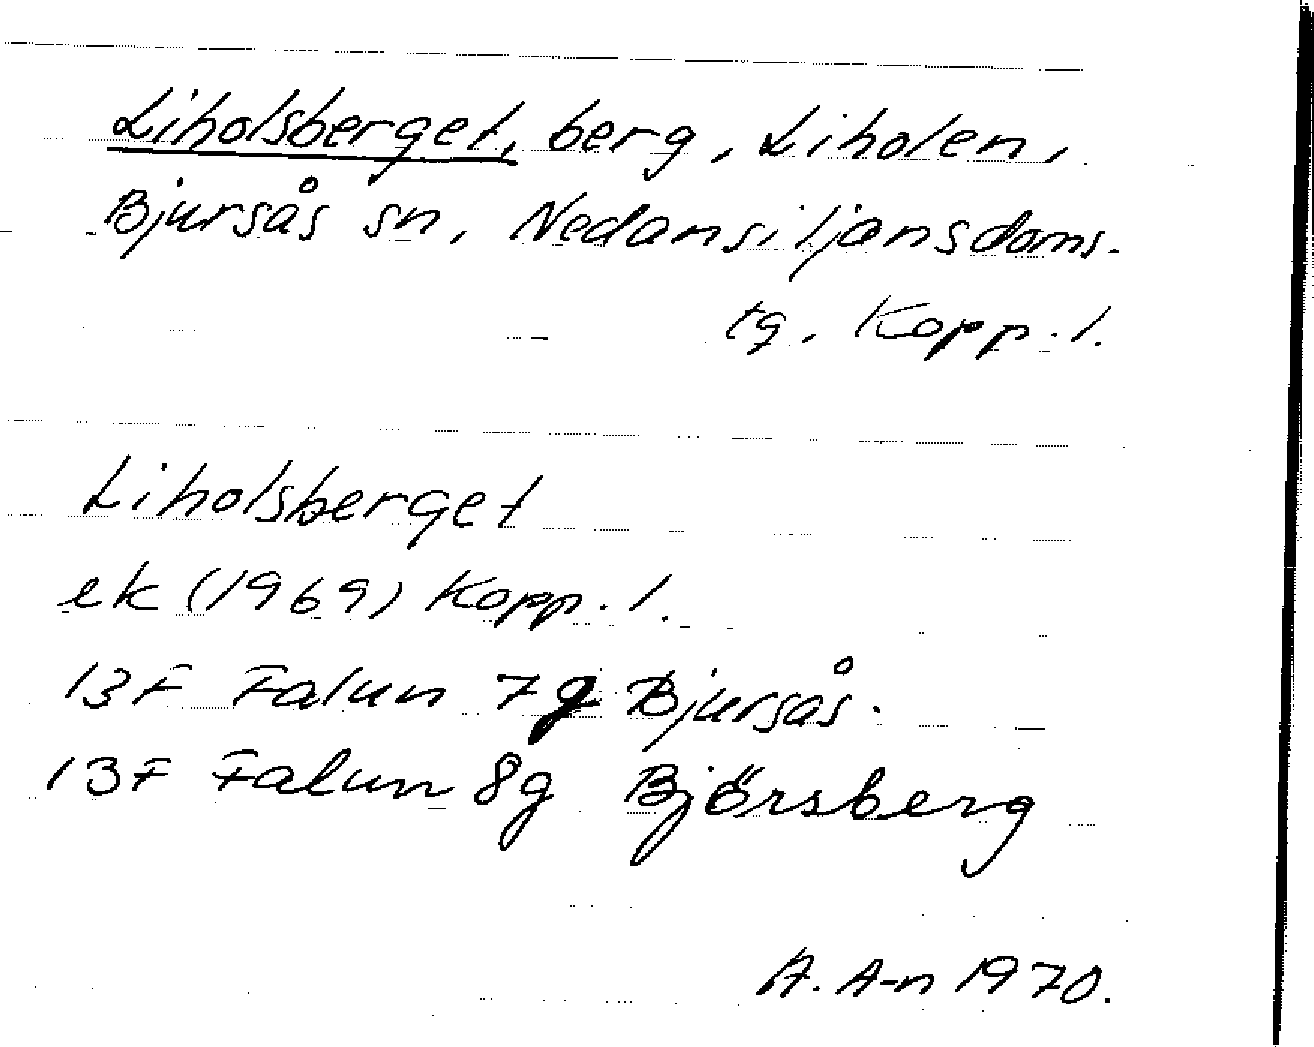 Liholsberget, berg, Liholen,
Bjursås sn, Nedansiljansdoms.
tg, Kopp. l.
Liholsberget
ek (1969) Kopp. l.
13F Falun 7g Bjursås.
13F Falun 8g Björsberg
A. A-n 1970.